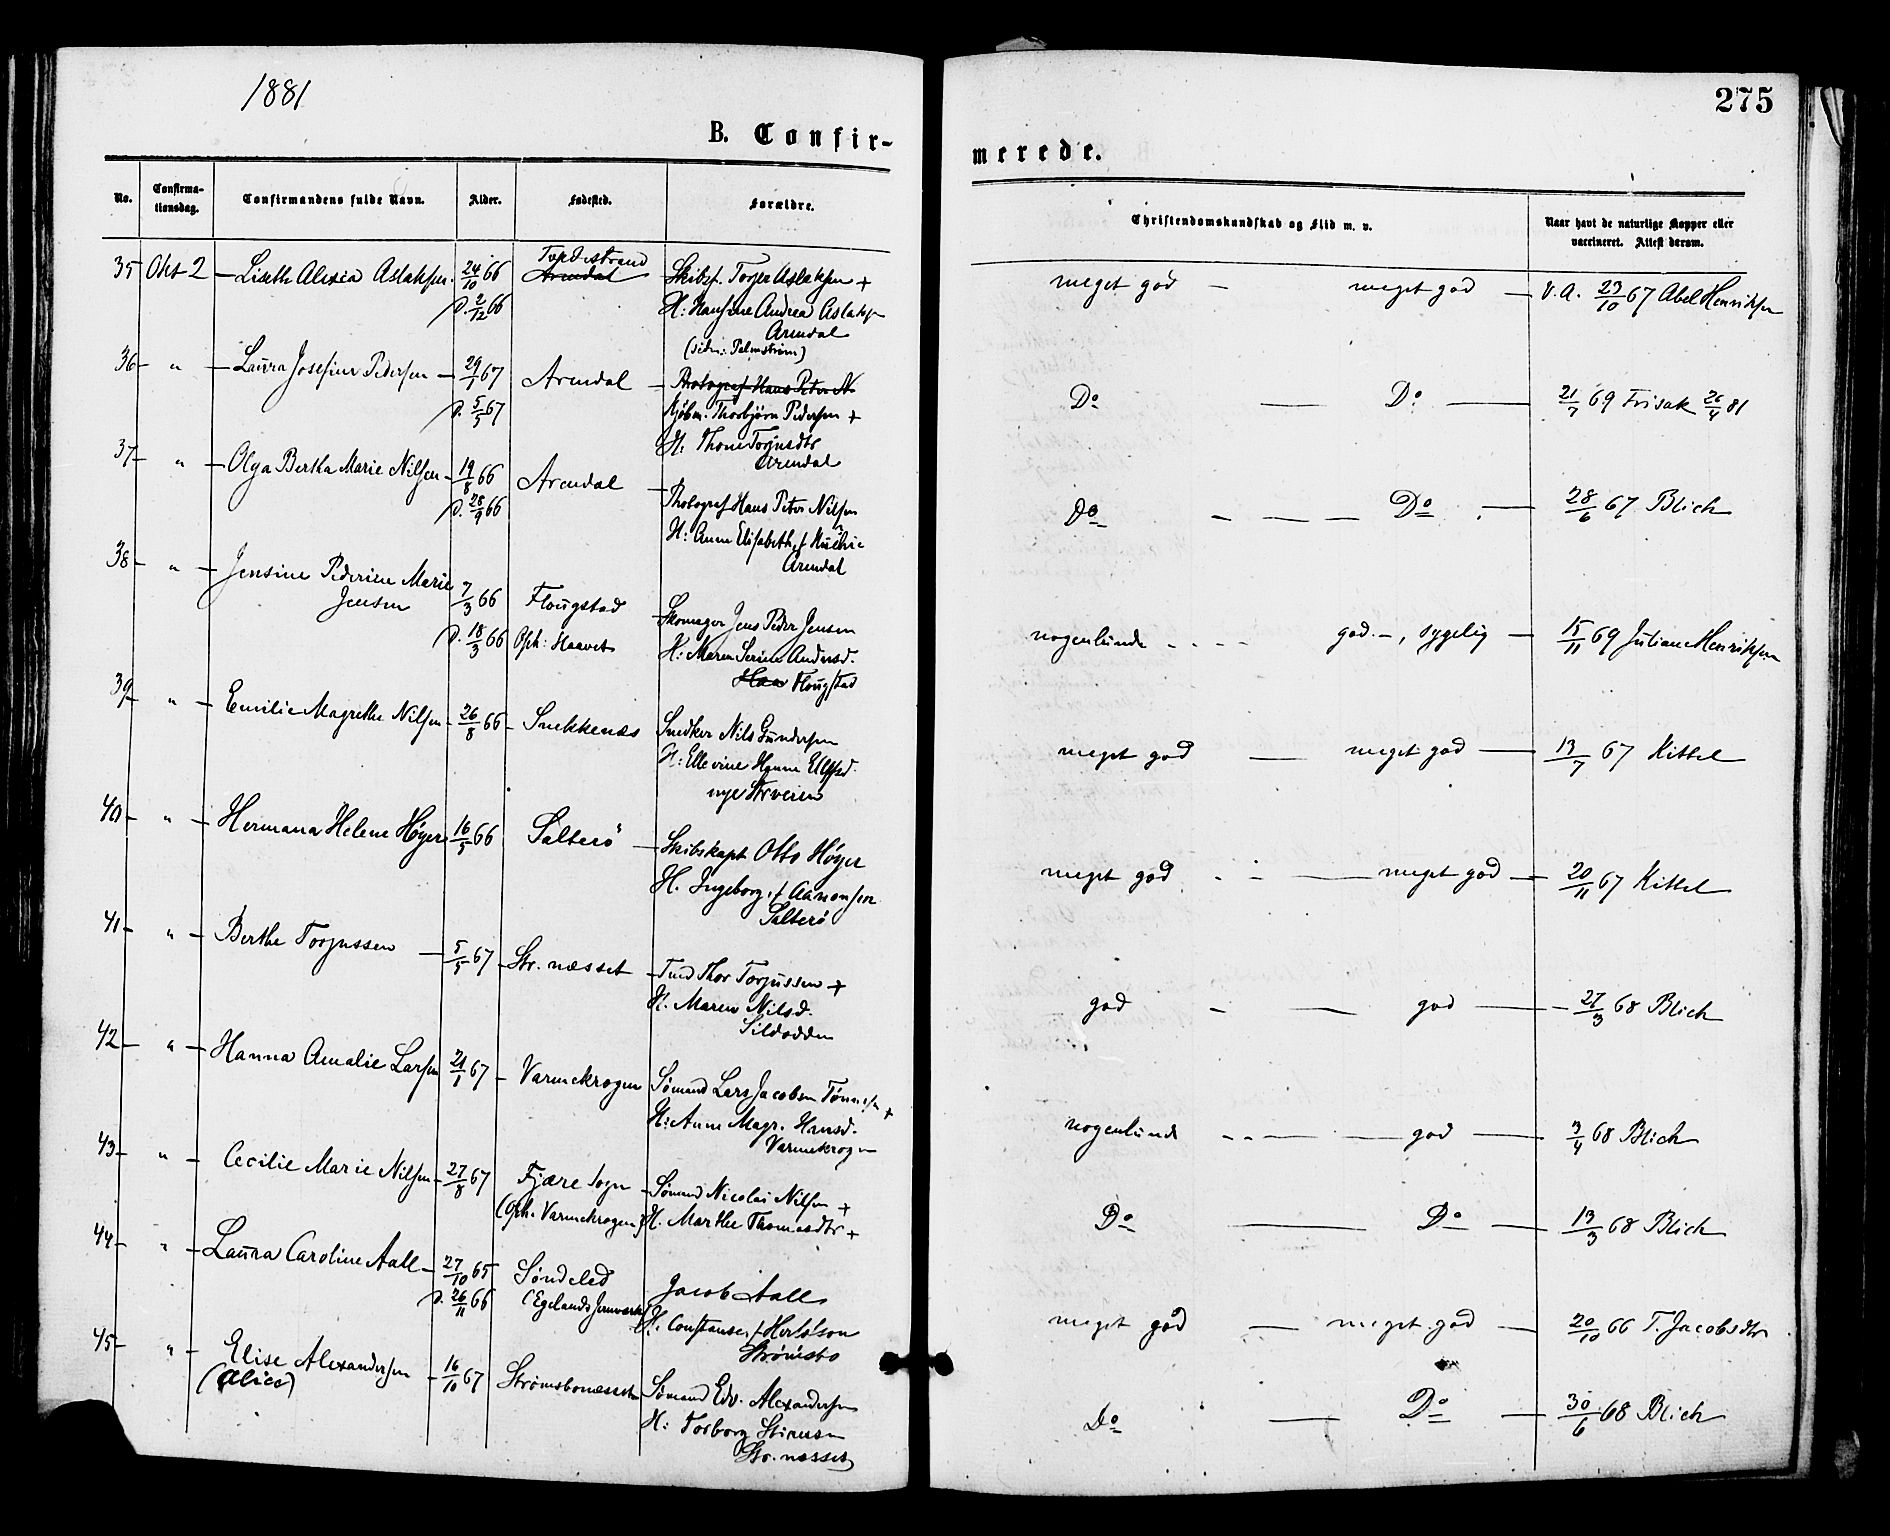 1881
275
B. Confir-
merede.
No.
Confirma-
tionsdag.
Confirmandens fulde Navn.
Alder.
Fødested.
Forældre.
Christendomskundskab og Flid m. v.
Naar havt de naturlige Kopper eller
vaccineret. Attest derom.
35 Okt 2 – Liseth Alexia Aslaksen. 24/10 66
d. 2/12 66
Tvedestrand
Arendal
Skibsf. Torjer Aslaksen +
H: Hansine Andrea Aslaks
Arendal
(siden: Palmstrøm)
meget god – meget god – V. A. 23/10 67 Abel Henriksen
36 – " – Laura Josefine Pedersen – 29/1 67 Arendal – Photograf Hans Peter N
d. 5/5 67
Kjøbm. Thorbjörn Pedersen +
H: Thone Torjusdtr
Arendal
Do — Do — 21/7 69 Frisak 26/4 81
37 – " – Olga Bertha Marie Nilsen – 19/8 66 Arendal –
d. 28/9 66
Photograf Hans Peter Nilsen
H: Anne Elisabeth, f
Arendal
Do – — — Do — 28/6 67 Blich
38 – " – Jensine Pederine Marie
Jensen 7/3 66 Flougstad
d. 18/3 66 Oph: Haavet
Skomager Jens Peder Jensen
H: Maren Serine Andersd.
Flougstad
nogenlunde - - - - god. –, sygelig – 15/11 69 Juliane Henriksen
39 – " – Emilie Magrethe Nilsen – 26/8 66 – Snekkenæs
Snedker Nils Gundersen
H: Ellevine Hanne Ellefsd.
nye Strveien
meget god — meget god — 13/7 67 Kittel
40 – " – Hermana Helene Høyer 16/5 66 Salterö –
Skibskapt Otto Höyer
H. Ingeborg, f Aanonsen
Salterö
meget god - - — meget god – 20/11 67 Kittel
41 – " – Berthe Torjussen — 5/5 67 – Str. næsset –
Tmd Thor Torjussen +
H. Maren Nilsd.
Sildodden
god – — god — – 27/3 68 Blich
42 – " – Hanna Amalie Larsen 21/1 67 – Varmekrogen
Sømand Lars Jacobsen +
H: Anne Magr. Hansd.
Varmekrogen
nogenlunde - - — — god — 3/4 68 Blich
43 – " – Cecilie Marie Nilsen – 27/8 67 Fjære Sogn –
(Oph. Varmekrogen)
Sømand Nicolai Nilsen +
H. Marthe Thomasdtr +
Do — Do — 13/3 68 Blich
44 – " – Laura Caroline Aall – 27/10 65 Søndeled
d. 26/11 66 (Egelands Jernværk)
Jacob Aall
H. Constanse, f Herlofson
Strömsbo
meget god — meget god — 20/10 66 T. Jacobsdtr
45 – " – Elise Alexandersen – 16/10 67 Strømsbonæsset
(Alice)
Sømand Edv. Alexandersen
H: Torborg
Str. næsset
Do — Do — 30/6 68 Blich